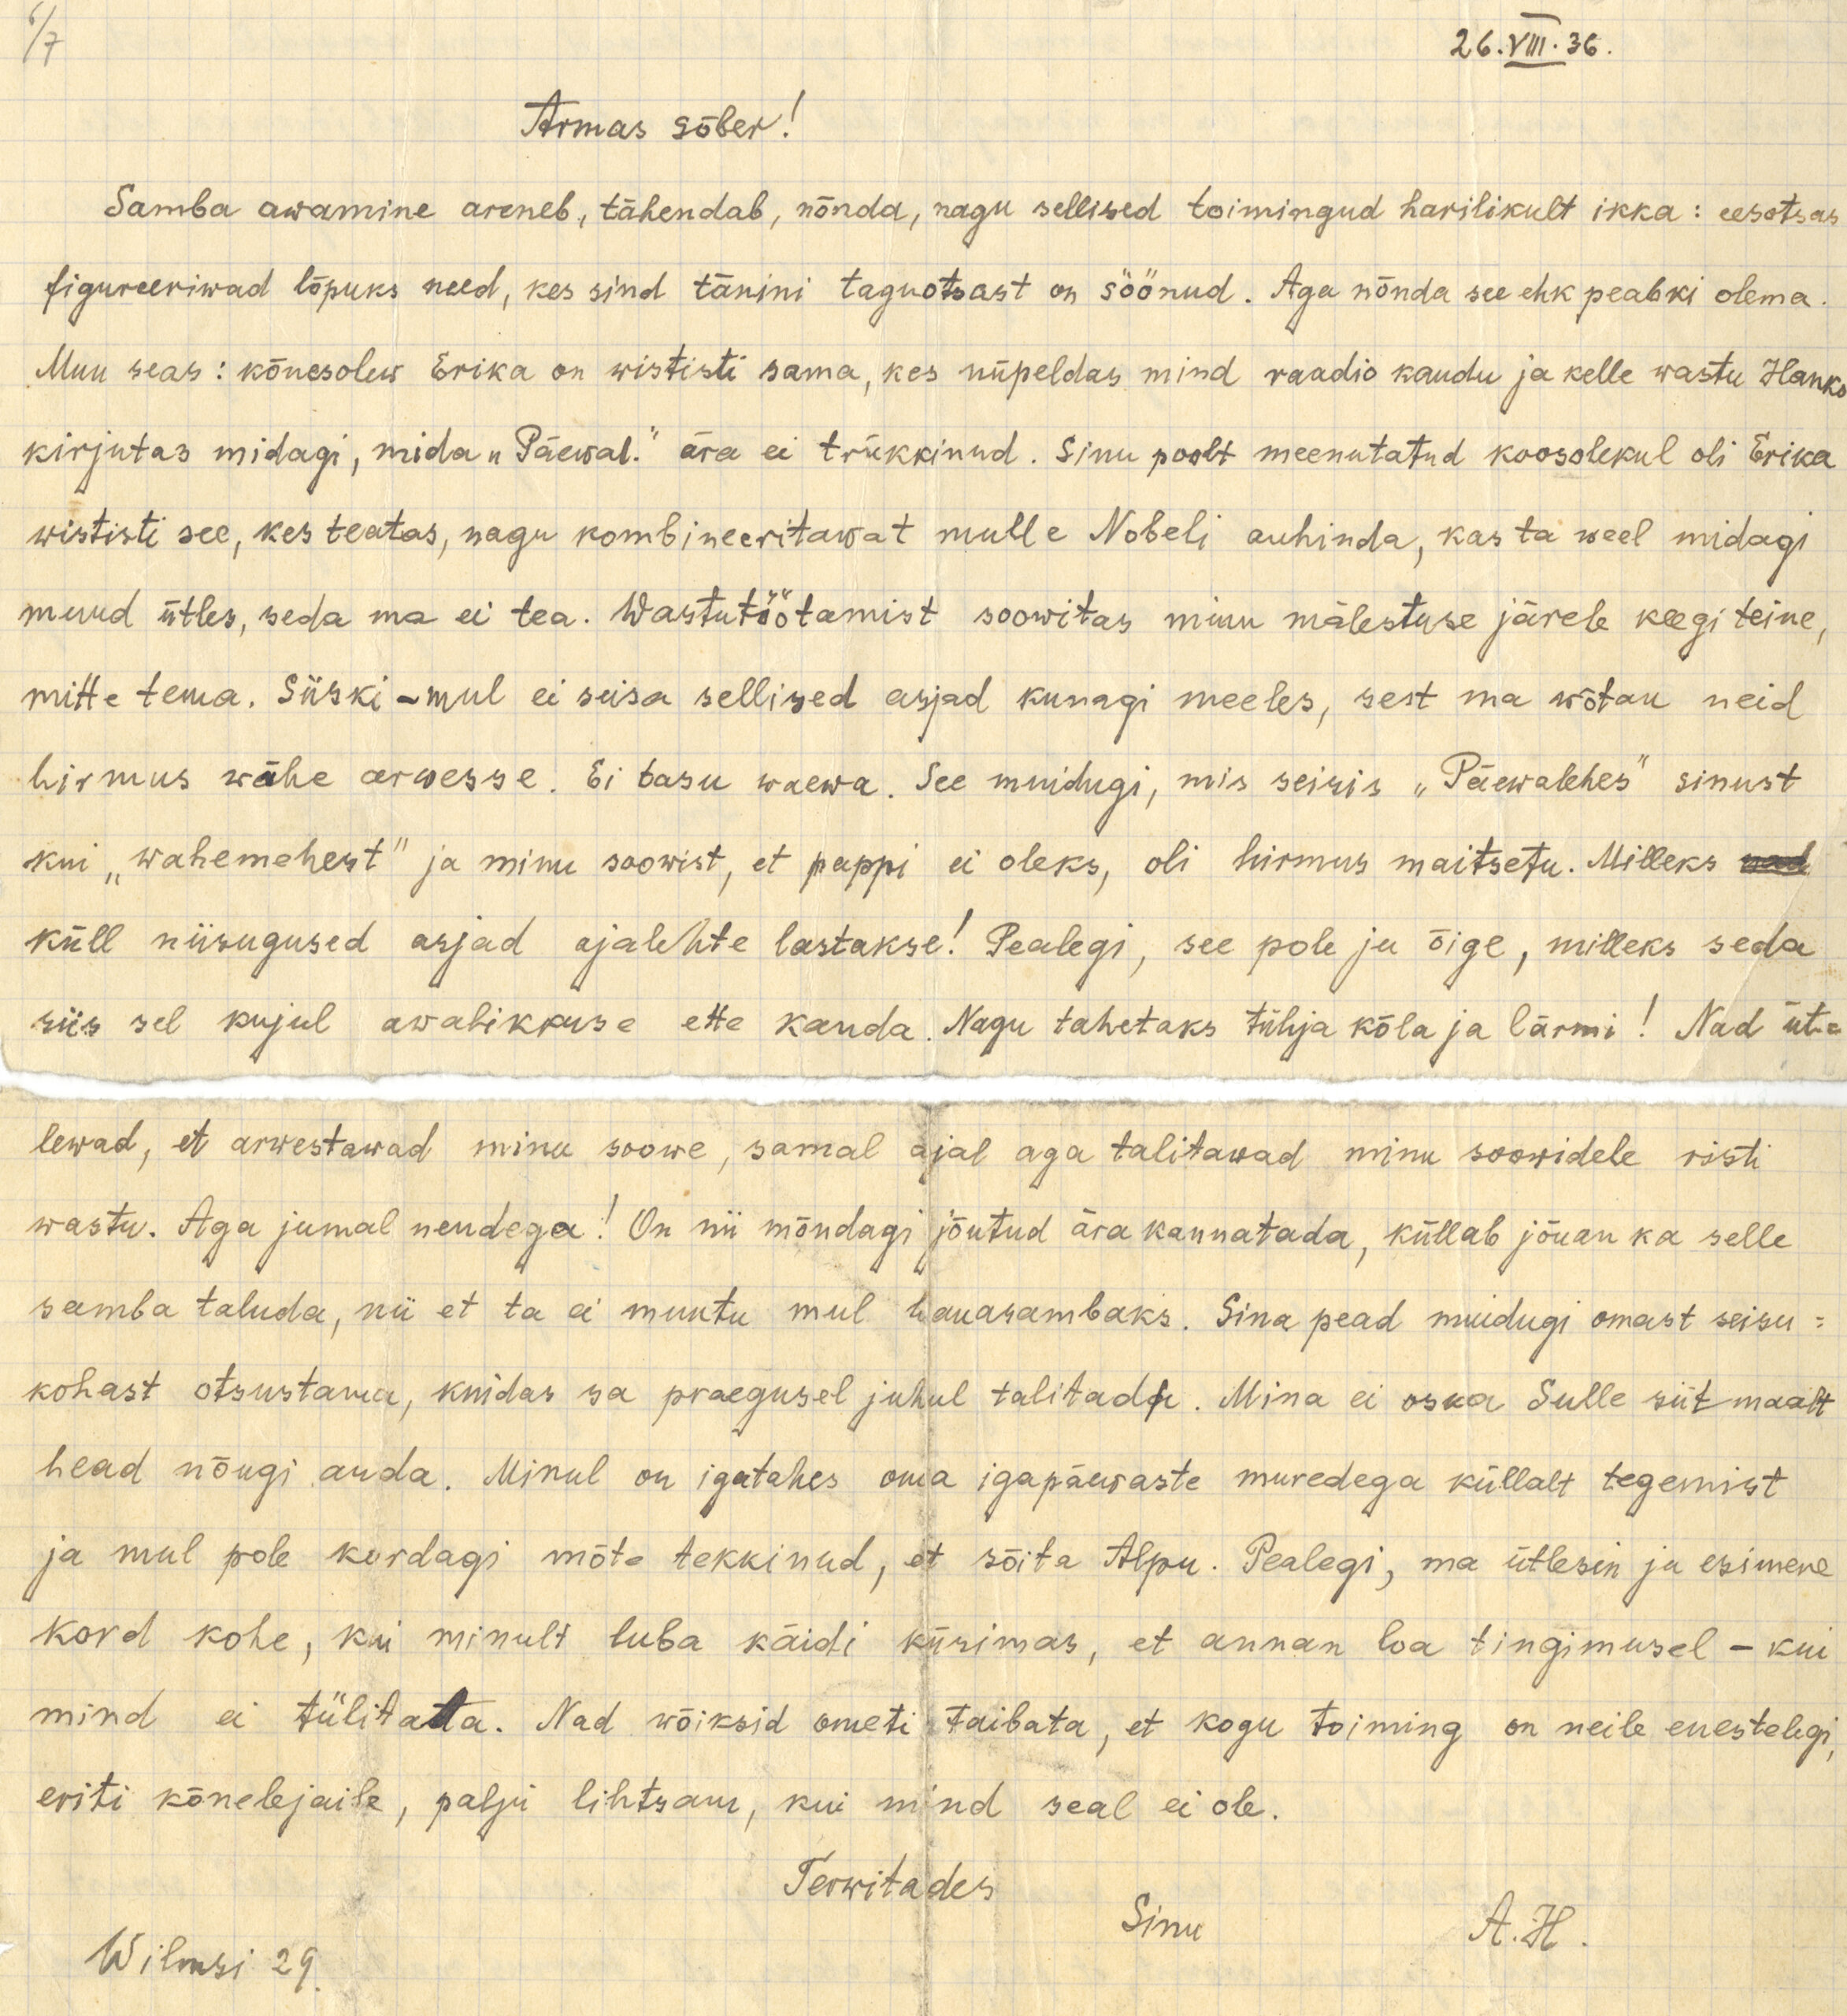 6/7
26.VIII.36.
Armas sõber!
Samba awamine areneb, tähendab, nõnda, nagu sellised toimingud harilikult ikka: eesotsas
figureeriwad lõpuks need, kes sind tänini taguotsast on söönud. Aga nõnda see ehk peabki olema.
Muu seas: kõnesolew Erika on wististi sama, kes nüpeldas mind raadio kaudu ja kelle wastu Hanko
kirjutas midagi, mida „Päewal." ära ei trükkinud. Sinu poolt meenutatud koosolekul oli Erika
wististi see, kes teatas, nagu kombineeritawat mulle Nobeli auhinda, kas ta weel midagi
muud ütles, seda ma ei tea. Wastutöötamist soowitas minu mälestuse järele keegi teine,
mitte tema. Siiski – mul ei seisa sellised asjad kunagi meeles, sest ma wõtan neid
hirmus wähe arwesse. Ei tasu waewa. See muidugi, mis seisis „Päewalehes" sinust
kui „wahemehest" ja minu soowist, et pappi ei oleks, oli hirmus maitsetu. Milleks
küll niisugused asjad ajalehte lastakse! Pealegi, see pole ju õige, milleks seda
siis sel kujul awalikkuse ette kanda. Nagu tahetaks tühja kõla ja lärmi! Nad üt=
lewad, et arwestawad minu soowe, samal ajal aga talitawad minu soowidele risti
wastu. Aga jumal nendega! On nii mõndagi jõutud ära kannatada, küllab jõuan ka selle
samba taluda, nii et ta ei muutu mul hauasambaks. Sina pead muidugi omast seisu=
kohast otsustama, kuidas sa praegusel juhul talitada. Mina ei oska Sulle siit maalt
head nõugi anda. Minul on igatahes oma igapäewaste muredega küllalt tegemist
ja mul pole kordagi mõte tekkinud, et sõita Alpu. Pealegi, ma ütlesin ju esimene
kord kohe, kui minult luba käidi küsimas, et annan loa tingimusel – kui
mind ei tülitata. Nad wõiksid ometi taibata, et kogu toiming on neile enestelegi,
eriti kõnelejaile, palju lihtsam, kui mind seal ei ole.
Terwitades
Sinu A.H.
Wilmsi 29.